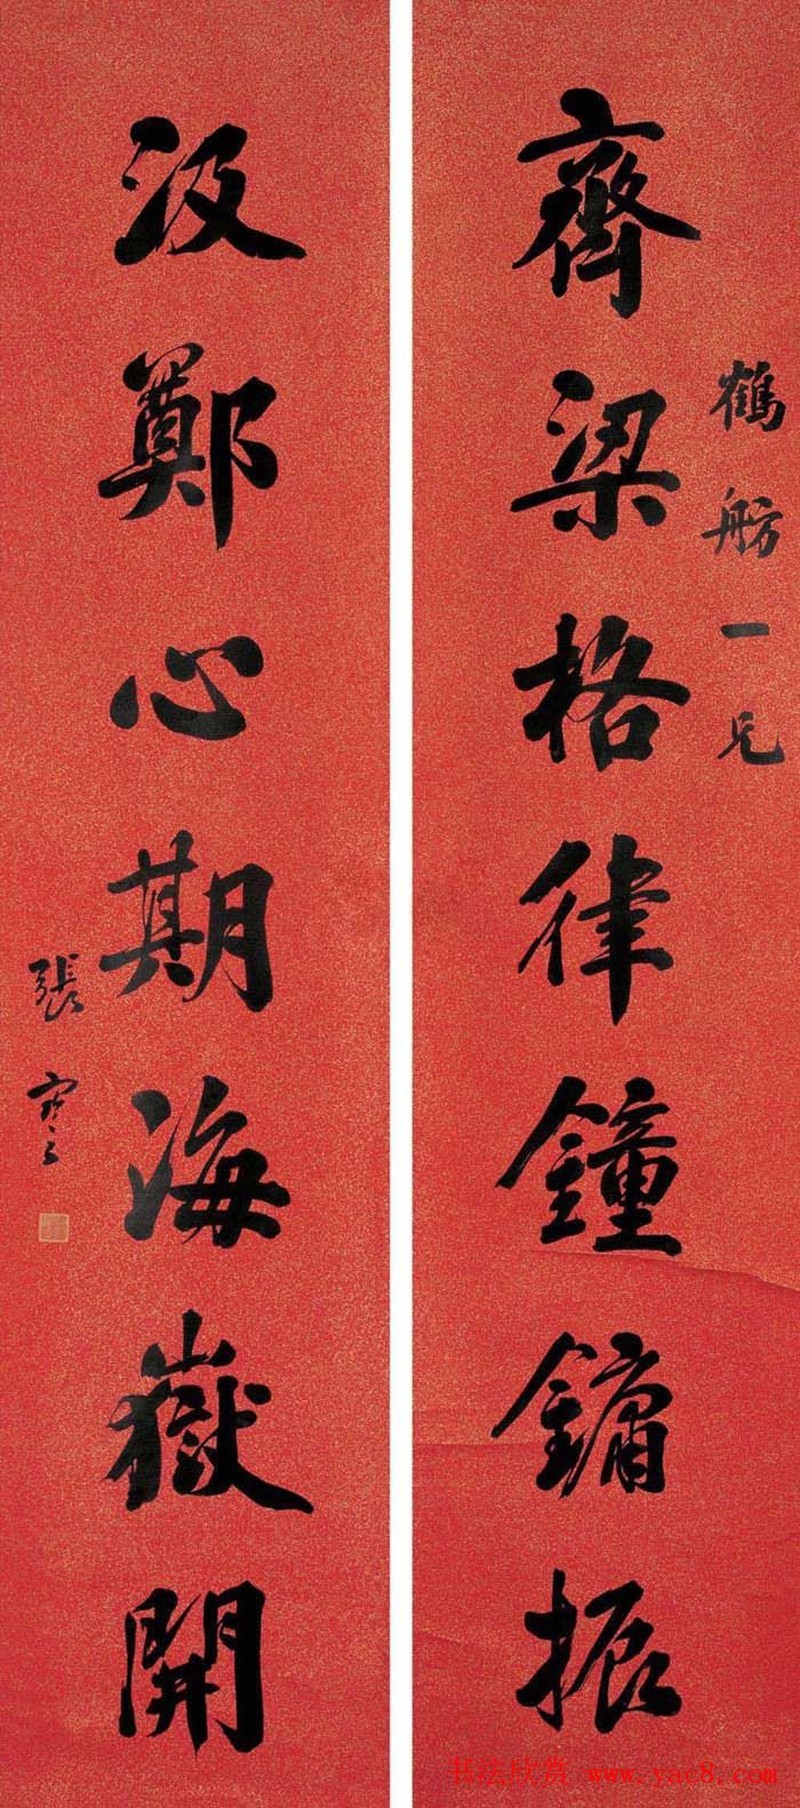 齊梁格律鐘鏞振
鶴舫一兄
汲鄭心期海嶽開
張謇
书法欣赏 www.yac8.com